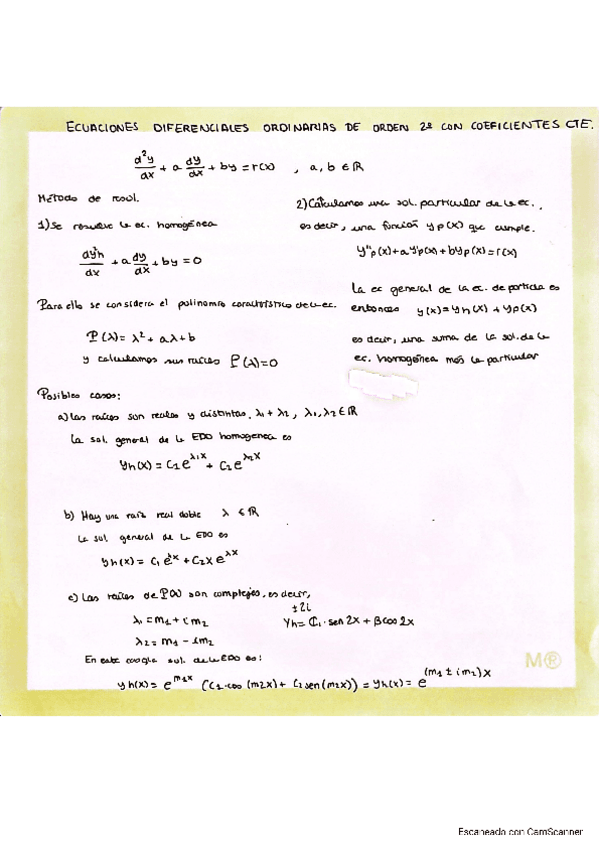 ECUACIONES DIFERENCIALES ORDINARIAS DE ORDEN 2º CON COEFICIENTES CTE.
d²y/dx + a dy/dx + by = r(x) , a, b ∈ ℝ
Método de resol.
1) Se resuelve la ec. homogénea
dy²h/dx + a dy/dx + by = 0
Para ello se considera el polinomio característico de la ec.
P(λ) = λ² + aλ + b
y calculamos sus raíces P(λ)=0
2) Calculamos una sol. particular de la ec.,
es decir, una función yp(x) que cumple.
y''p(x)+ay'p(x)+byp(x)=r(x)
La ec general de la ec. de partida es
entonces y(x)=yh(x) + yp(x)
es decir, una suma de la sol. de la
ec. homogénea más la particular
Posibles casos:
a) Las raíces son reales y distintas. λ1 ≠ λ2, λ1, λ2 ∈ ℝ
La sol. general de la EDO homogenea es
yh(x) = C1e^λ1x + C2e^λ2x
b) Hay una raíz real doble λ ∈ ℝ
La sol general de la EDO es
yh(x) = C1e^λx + C2xe^λx
c) Las raíces de P(λ) son complejas, es decir,
±2i
λ1 = m1 + im2
yh = C1·sen2x + βcos2x
λ2 = m1 - im2
En este sol. de la EDO es:
yh(x) = e^m1x (C1·cos(m2x) + C2sen(m2x)) = yh(x) = e^(m1 ± im2)x
M®
Escaneado con CamScanner